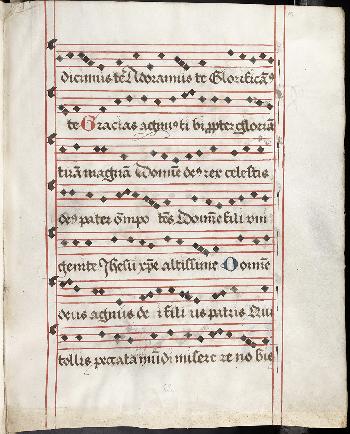 dicimus te Adoramus te Glorificam9
te Gracias agimus ti bi ppter gloriã
tuã magnã Domine de9 rex celestis
de9 pater õmpo tẽs Domine fili vni
genite Jhesu xp̃e altissime Domine
deus agnus de i fili us patris Qui
tollis peccata mũdi misere re no bis